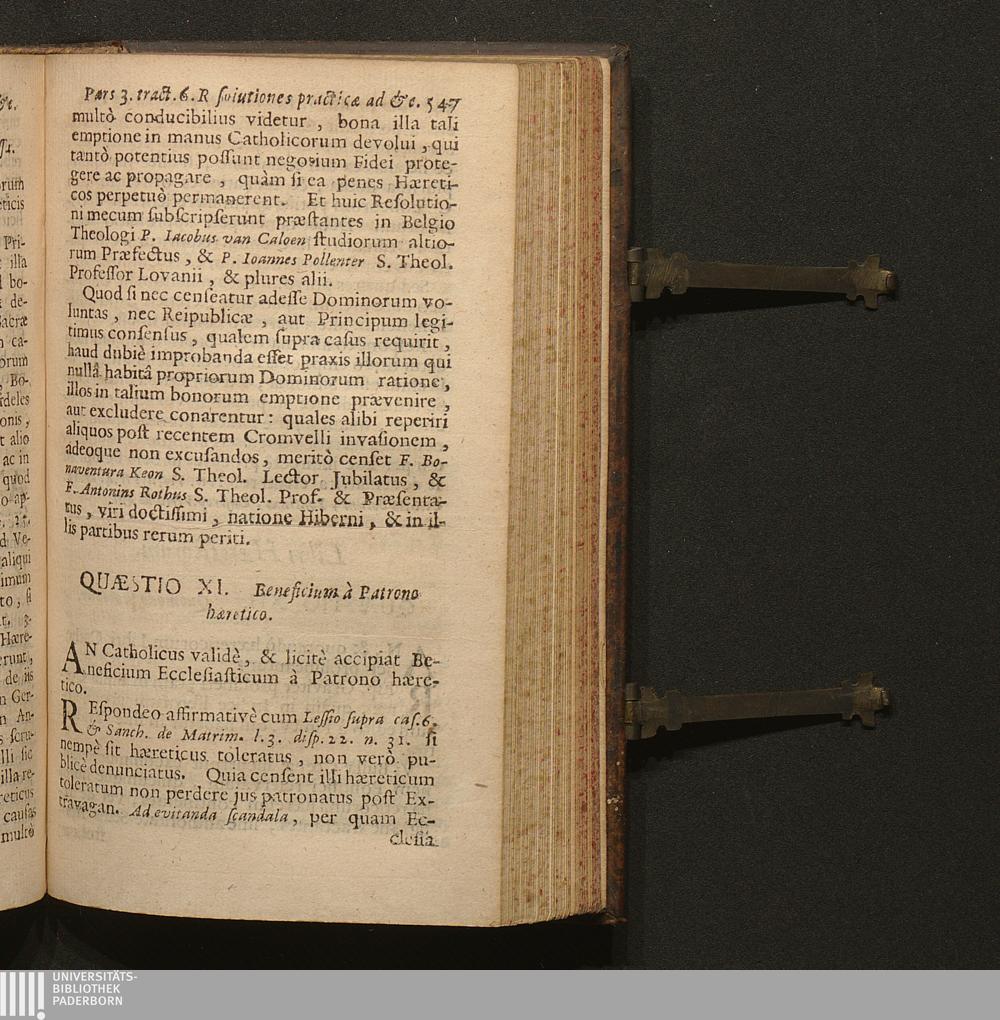 Pars 3. tract. 6. R ſoiutiones practicæ ad &c. 547
multò conducibilius videtur , bona illa tali
emptione in manus Catholicorum devolui , qui
tantò potentius poſſunt negotium Fidei prote-
gere ac propagare , quàm ſi ea penes Hæreti-
cos perpetuò permanerent. Et huic Reſolutio-
ni mecum ſubſcripſerunt præſtantes in Belgio
Theologi P. Iacobus van Caloen ſtudiorum altio-
rum Præfectus , & P. Ioannes Pollenter S. Theol.
Profeſſor Lovanii , & plures alii.
Quod ſi nec cenſeatur adeſſe Dominorum vo-
luntas , nec Reipublicæ , aut Principum legi-
timus conſenſus , qualem ſupra caſus requirit ,
haud dubiè improbanda eſſet praxis illorum qui
nullâ habitâ propriorum Dominorum ratione ,
illos in talium bonorum emptione prævenire ,
aut excludere conarentur : quales alibi reperiri
aliquos poſt recentem Cromvelli invaſionem ,
adeoque non excuſandos , meritò cenſet F. Bo-
naventura Keon S. Theol. Lector Jubilatus , &
F. Antonius Rothus S. Theol. Prof. & Præſenta-
tus , viri doctiſſimi , natione Hiberni , & in il-
lis partibus rerum periti.
QUÆSTIO XI. Beneficium à Patrono
hæretico.
AN Catholicus validè , & licitè accipiat Be-
neficium Eccleſiaſticum à Patrono hære-
tico.
REſpondeo affirmativè cum Leſſio ſupra caſ. 6.
& Sanch. de Matrim. l. 3. diſp. 22. n. 31. ſi
nempè ſit hæreticus toleratus , non verò pu-
blicè denunciatus. Quia cenſent illi hæreticum
toleratum non perdere jus patronatus poſt Ex-
travagan. Ad evitanda ſcandala , per quam Ec-
cleſia
UNIVERSITÄTS-
BIBLIOTHEK
PADERBORN